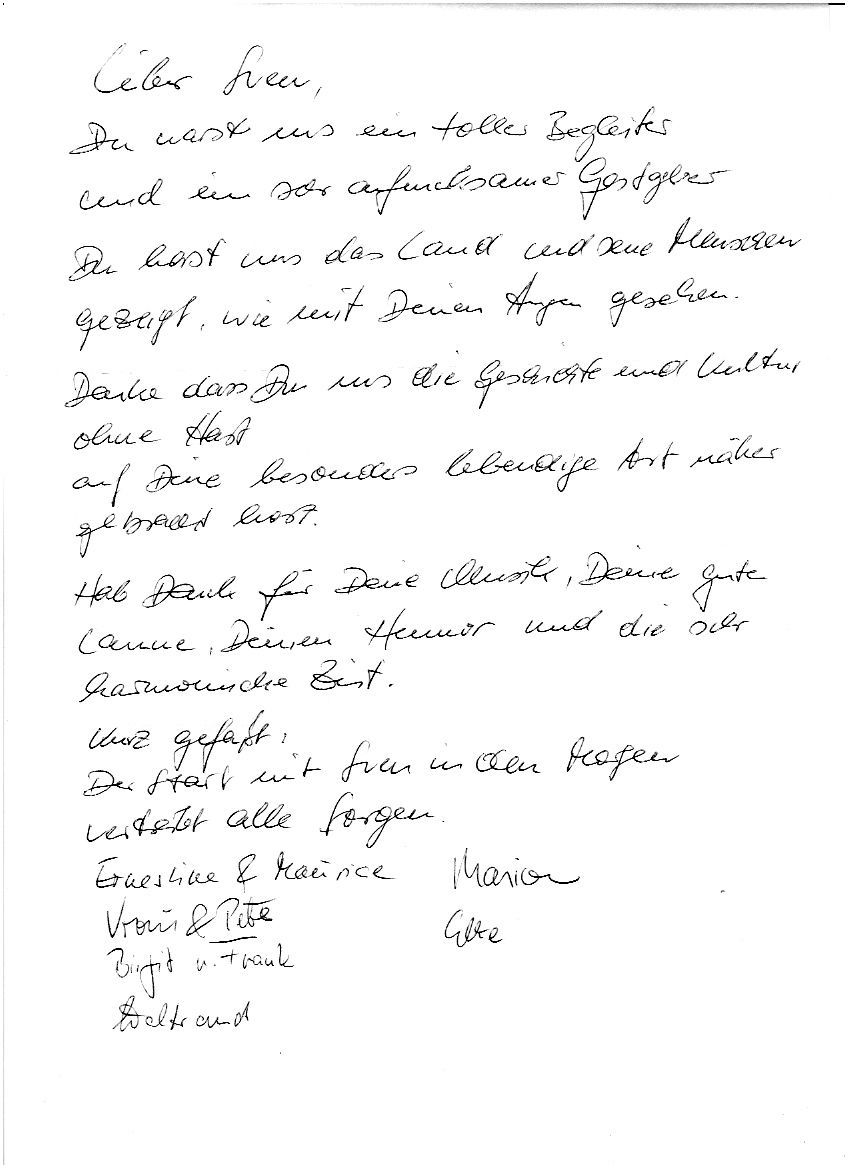 Lieber Sven,
Du warst uns ein toller Begleiter
und ein sehr aufmerksamer Gastgeber
Du hast uns das Land und seine Menschen
gezeigt, wie mit Deinen Augen gesehen.
Danke dass Du uns die Geschichte und Kultur
ohne Hast
auf Deine besonders lebendige Art näher
gebracht hast.
Hab Dank für Deine Musik, Deine gute
Laune, Deinen Humor und die sehr
harmonische Zeit.
Kurz gefaßt:
Der Start mit Sven in den Morgen
vertreibt alle Sorgen.
Ernestine & Maurice Marion
Vroni & Peter
Birgit u. Frank
Waltraud